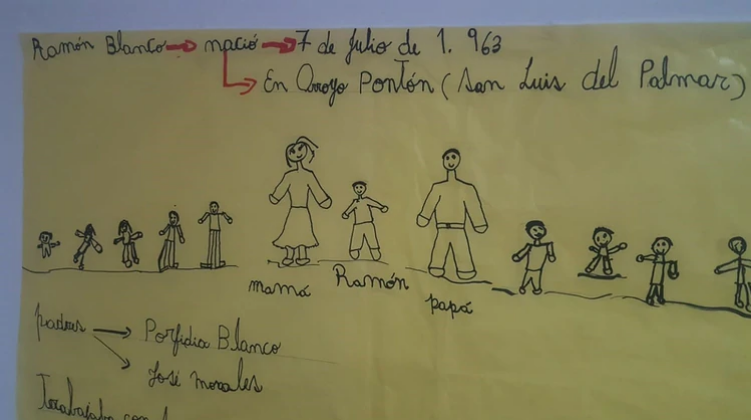 Ramón Blanco → nació → 7 de Julio de 1.963
En Arroyo Pontón (San Luis del Palmar)
mamá
Ramón
papá
padres → Porfidia Blanco
José Morales
Trabajaba con